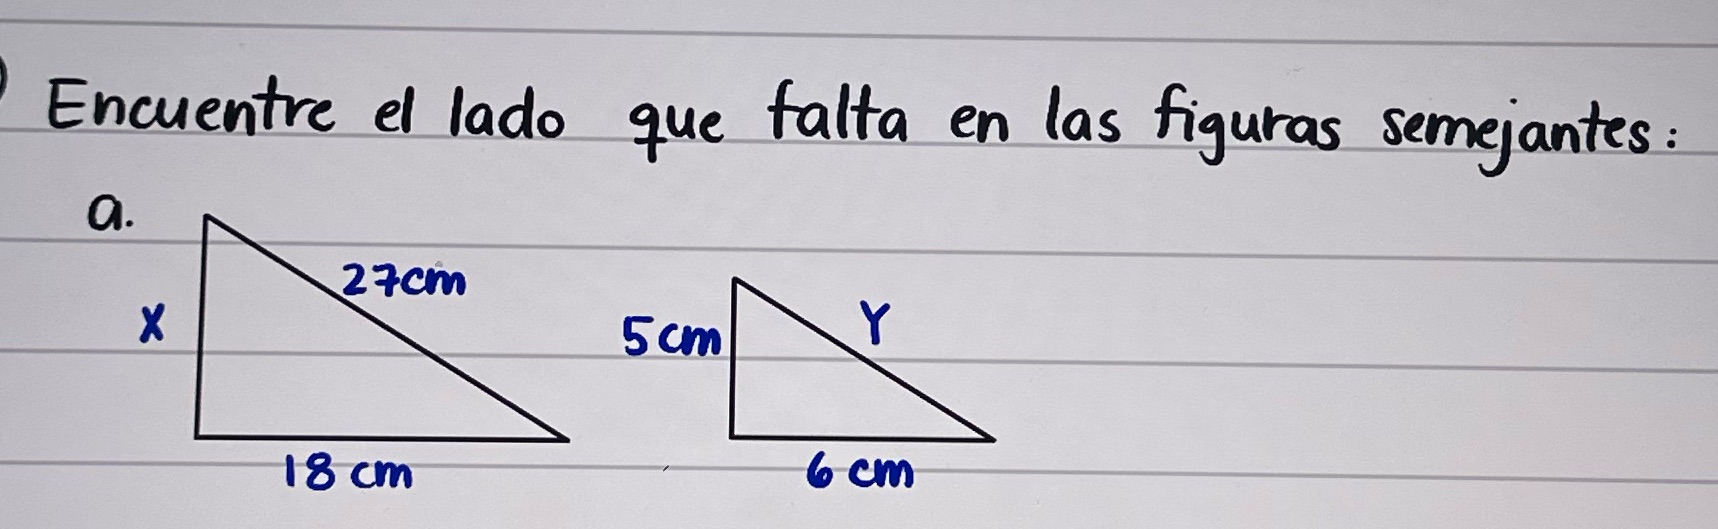 ) Encuentre el lado que falta en las figuras semejantes:
a.
27cm
X
18 cm
5cm
Y
6 cm